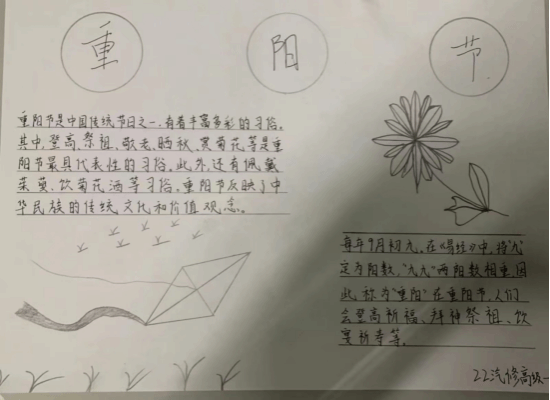 重阳节
重阳节是中国传统节日之一,有着丰富多彩的习俗。
其中,登高、祭祖、敬老、晒秋、赏菊花等是重
阳节最具代表性的习俗。此外,还有佩戴
茱萸、饮菊花酒等习俗。重阳节反映了中
华民族的传统文化和价值观念。
每年9月初九,在《易经》中,将九
定为阳数,“九九”两阳数相重因
此,称为“重阳”在重阳节,人们
会登高祈福、拜神祭祖、饮
宴祈寿等。
22汽修高级一